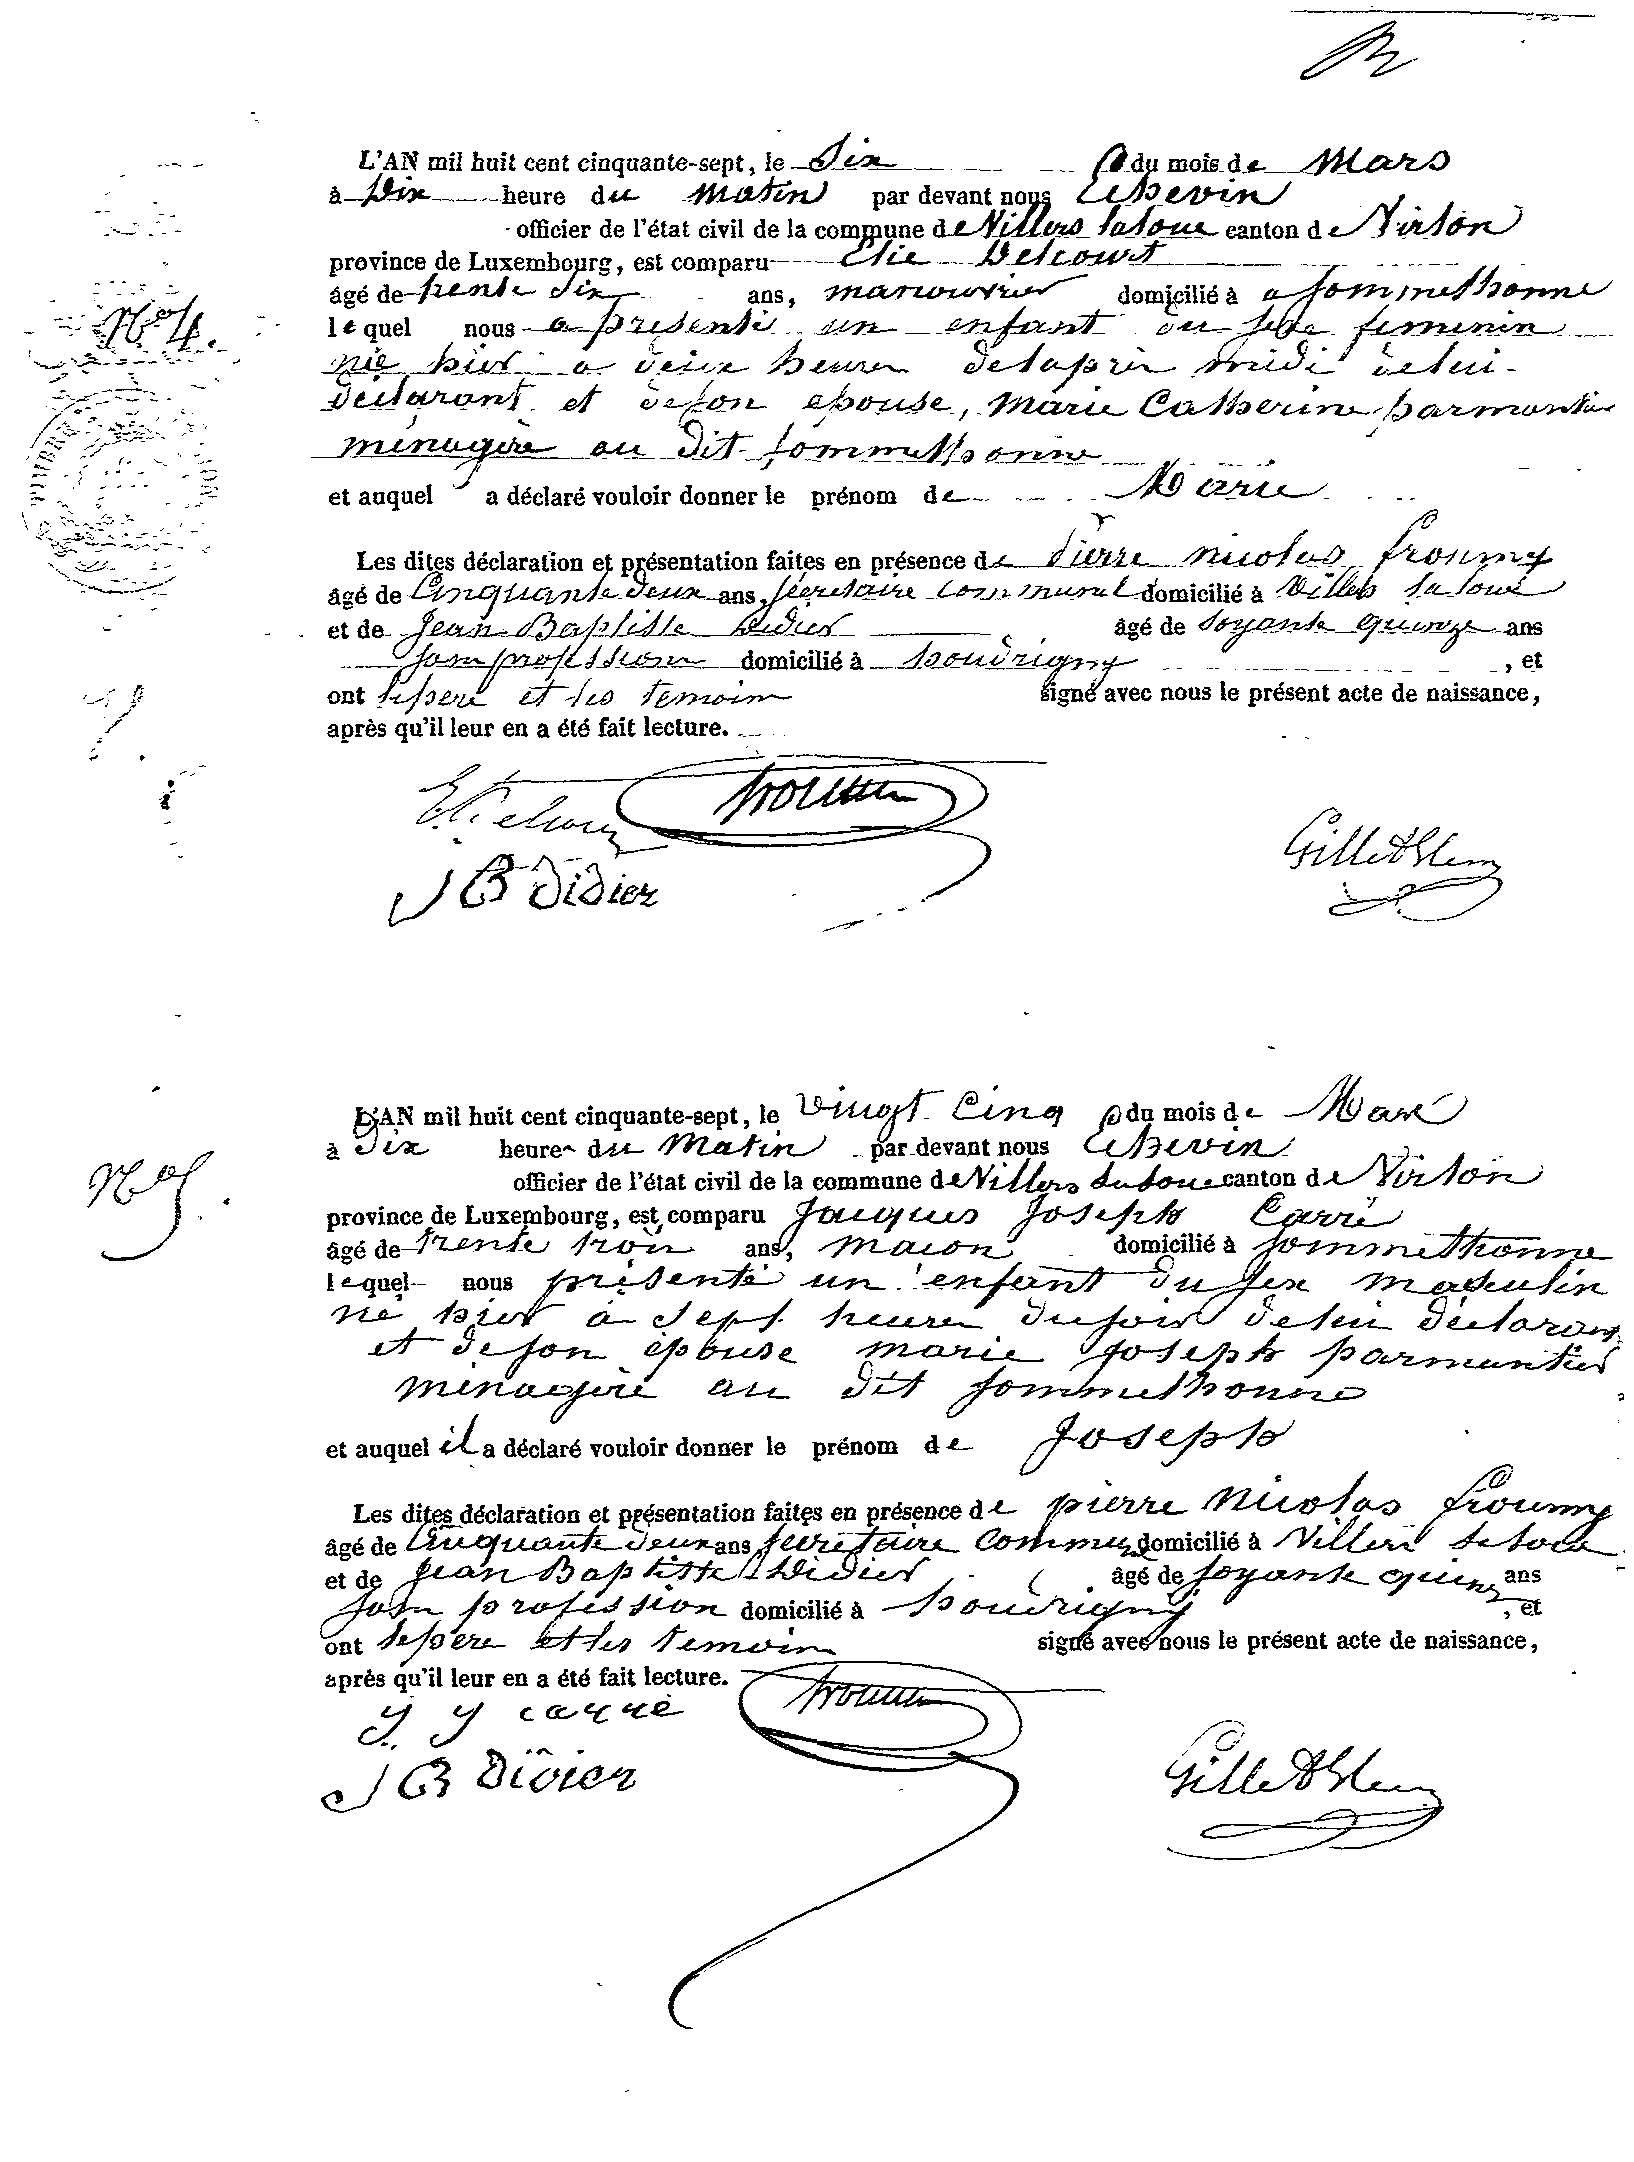 L'AN mil huit cent cinquante-sept, le Six du mois de Mars
à Dix heure du Matin par devant nous Echevin
officier de l'état civil de la commune de Villers laloue canton de Virton
province de Luxembourg, est comparu Elie Delcourt
âgé de trente Six ans, manouvrier domicilié à a Sommethonne
No 4.
lequel nous a présenté un enfant du sexe feminin
née hier a deux heures delaprès midi delui
déclarant et deson épouse, Marie Catherine parmentier
ménagère au dit Sommethonne
et auquel a déclaré vouloir donner le prénom de Marie
Les dites déclaration et présentation faites en présence de Pierre Nicolas froumy
âgé de Cinquante deux ans, Secretaire communal domicilié à Villers laloue
et de Jean Baptiste Didier âgé de Soyante quinze ans
sans profession domicilié à houdrigny , et
ont lepere et les temoins signé avec nous le présent acte de naissance,
après qu'il leur en a été fait lecture.
E. Delcour froumy
J B Didier
L'AN mil huit cent cinquante-sept, le Vingt Cinq du mois de Mars
à Dix heures du Matin par devant nous Echevin
No 5.
officier de l'état civil de la commune de Villers laloue canton de Virton
province de Luxembourg, est comparu Jacques Joseph Carré
âgé de trente trois ans, macon domicilié à Sommethonne
lequel nous présenté un enfant du sex masculin
né hier à Sept heures dusoir delui déclarant
et deson épouse marie joseph parmentier
ménagère au dit Sommethonne
et auquel il a déclaré vouloir donner le prénom de Joseph
Les dites déclaration et présentation faites en présence de pierre Nicolas froumy
âgé de Cinquante deux ans, Secretaire commun domicilié à Villers laloue
et de Jean Baptiste Didier âgé de Soyante quinze ans
sans profession domicilié à houdrigny , et
ont lepere et les temoins signé avec nous le présent acte de naissance,
après qu'il leur en a été fait lecture.
J. J carré froumy
J B Didier